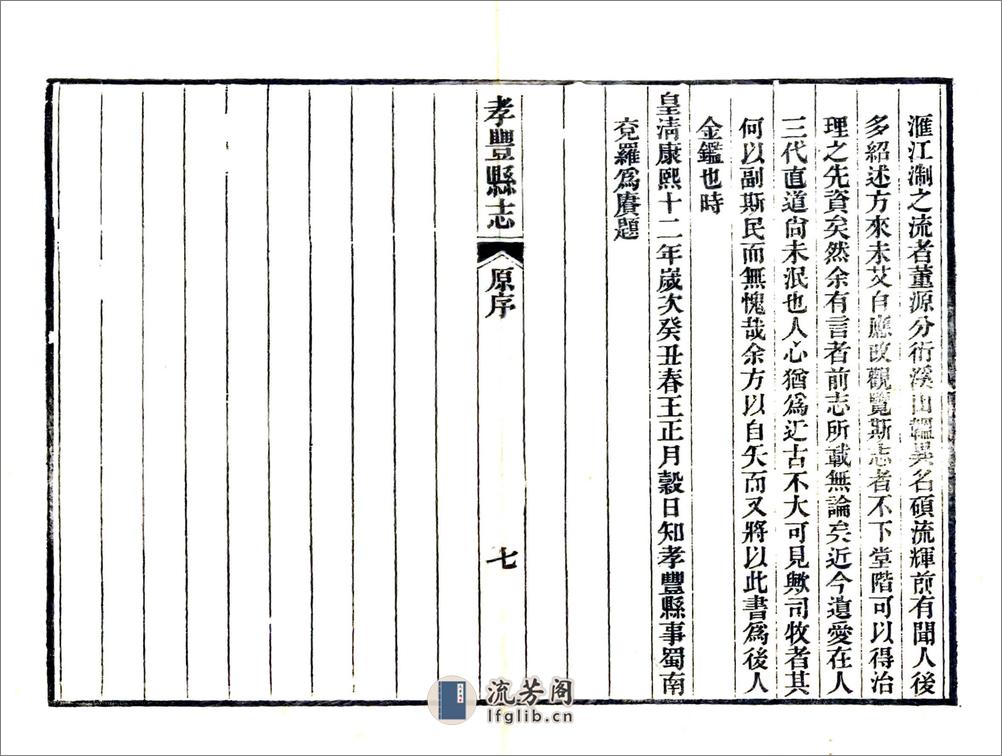 滙江淛之流者董源分衍溪山韞異名碩流輝前有聞人後
多紹述方來未艾自應改觀覽斯志者不下堂階可以得治
理之先資矣然余有言者前志所載無論矣近今遺愛在人
三代直道尚未泯也人心猶爲近古不大可見歟司牧者其
何以副斯民而無愧哉余方以自矢而又將以此書爲後人
金鑑也時
皇淸康熙十二年歲次癸丑春王正月穀日知孝豐縣事蜀南
兗羅爲賡題
孝豐縣志
原序
七
流芳阁
lfglib.cn